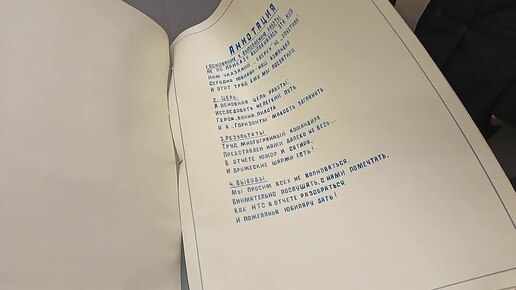 Аннотация
1. Основание к выполнению работы:
Не по приказу выполнялась эта НИР
Нам указаний "сверху" не спустили
Сегодня юбиляр - наш командир
И этот труд ему мы посвятили.
2. Цель
А основная цель работы:
Исследовать нелегкий путь
Героя, воина, пилота
И в "горизонты" малость заглянуть
3. Результаты
Труд многогранный командира
Представлен нами далеко не весь...
В отчете юмор и сатира,
И дружеские шаржи есть!
4. Выводы:
Мы просим всех не волноваться.
Внимательно послушать, с нами помечтать,
Как НТС в отчете разобраться
И пожеланья юбиляру дать!